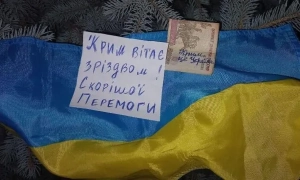 Крим вітає
зріздвом!
Скорішої
Перемоги
Крим
це Україна